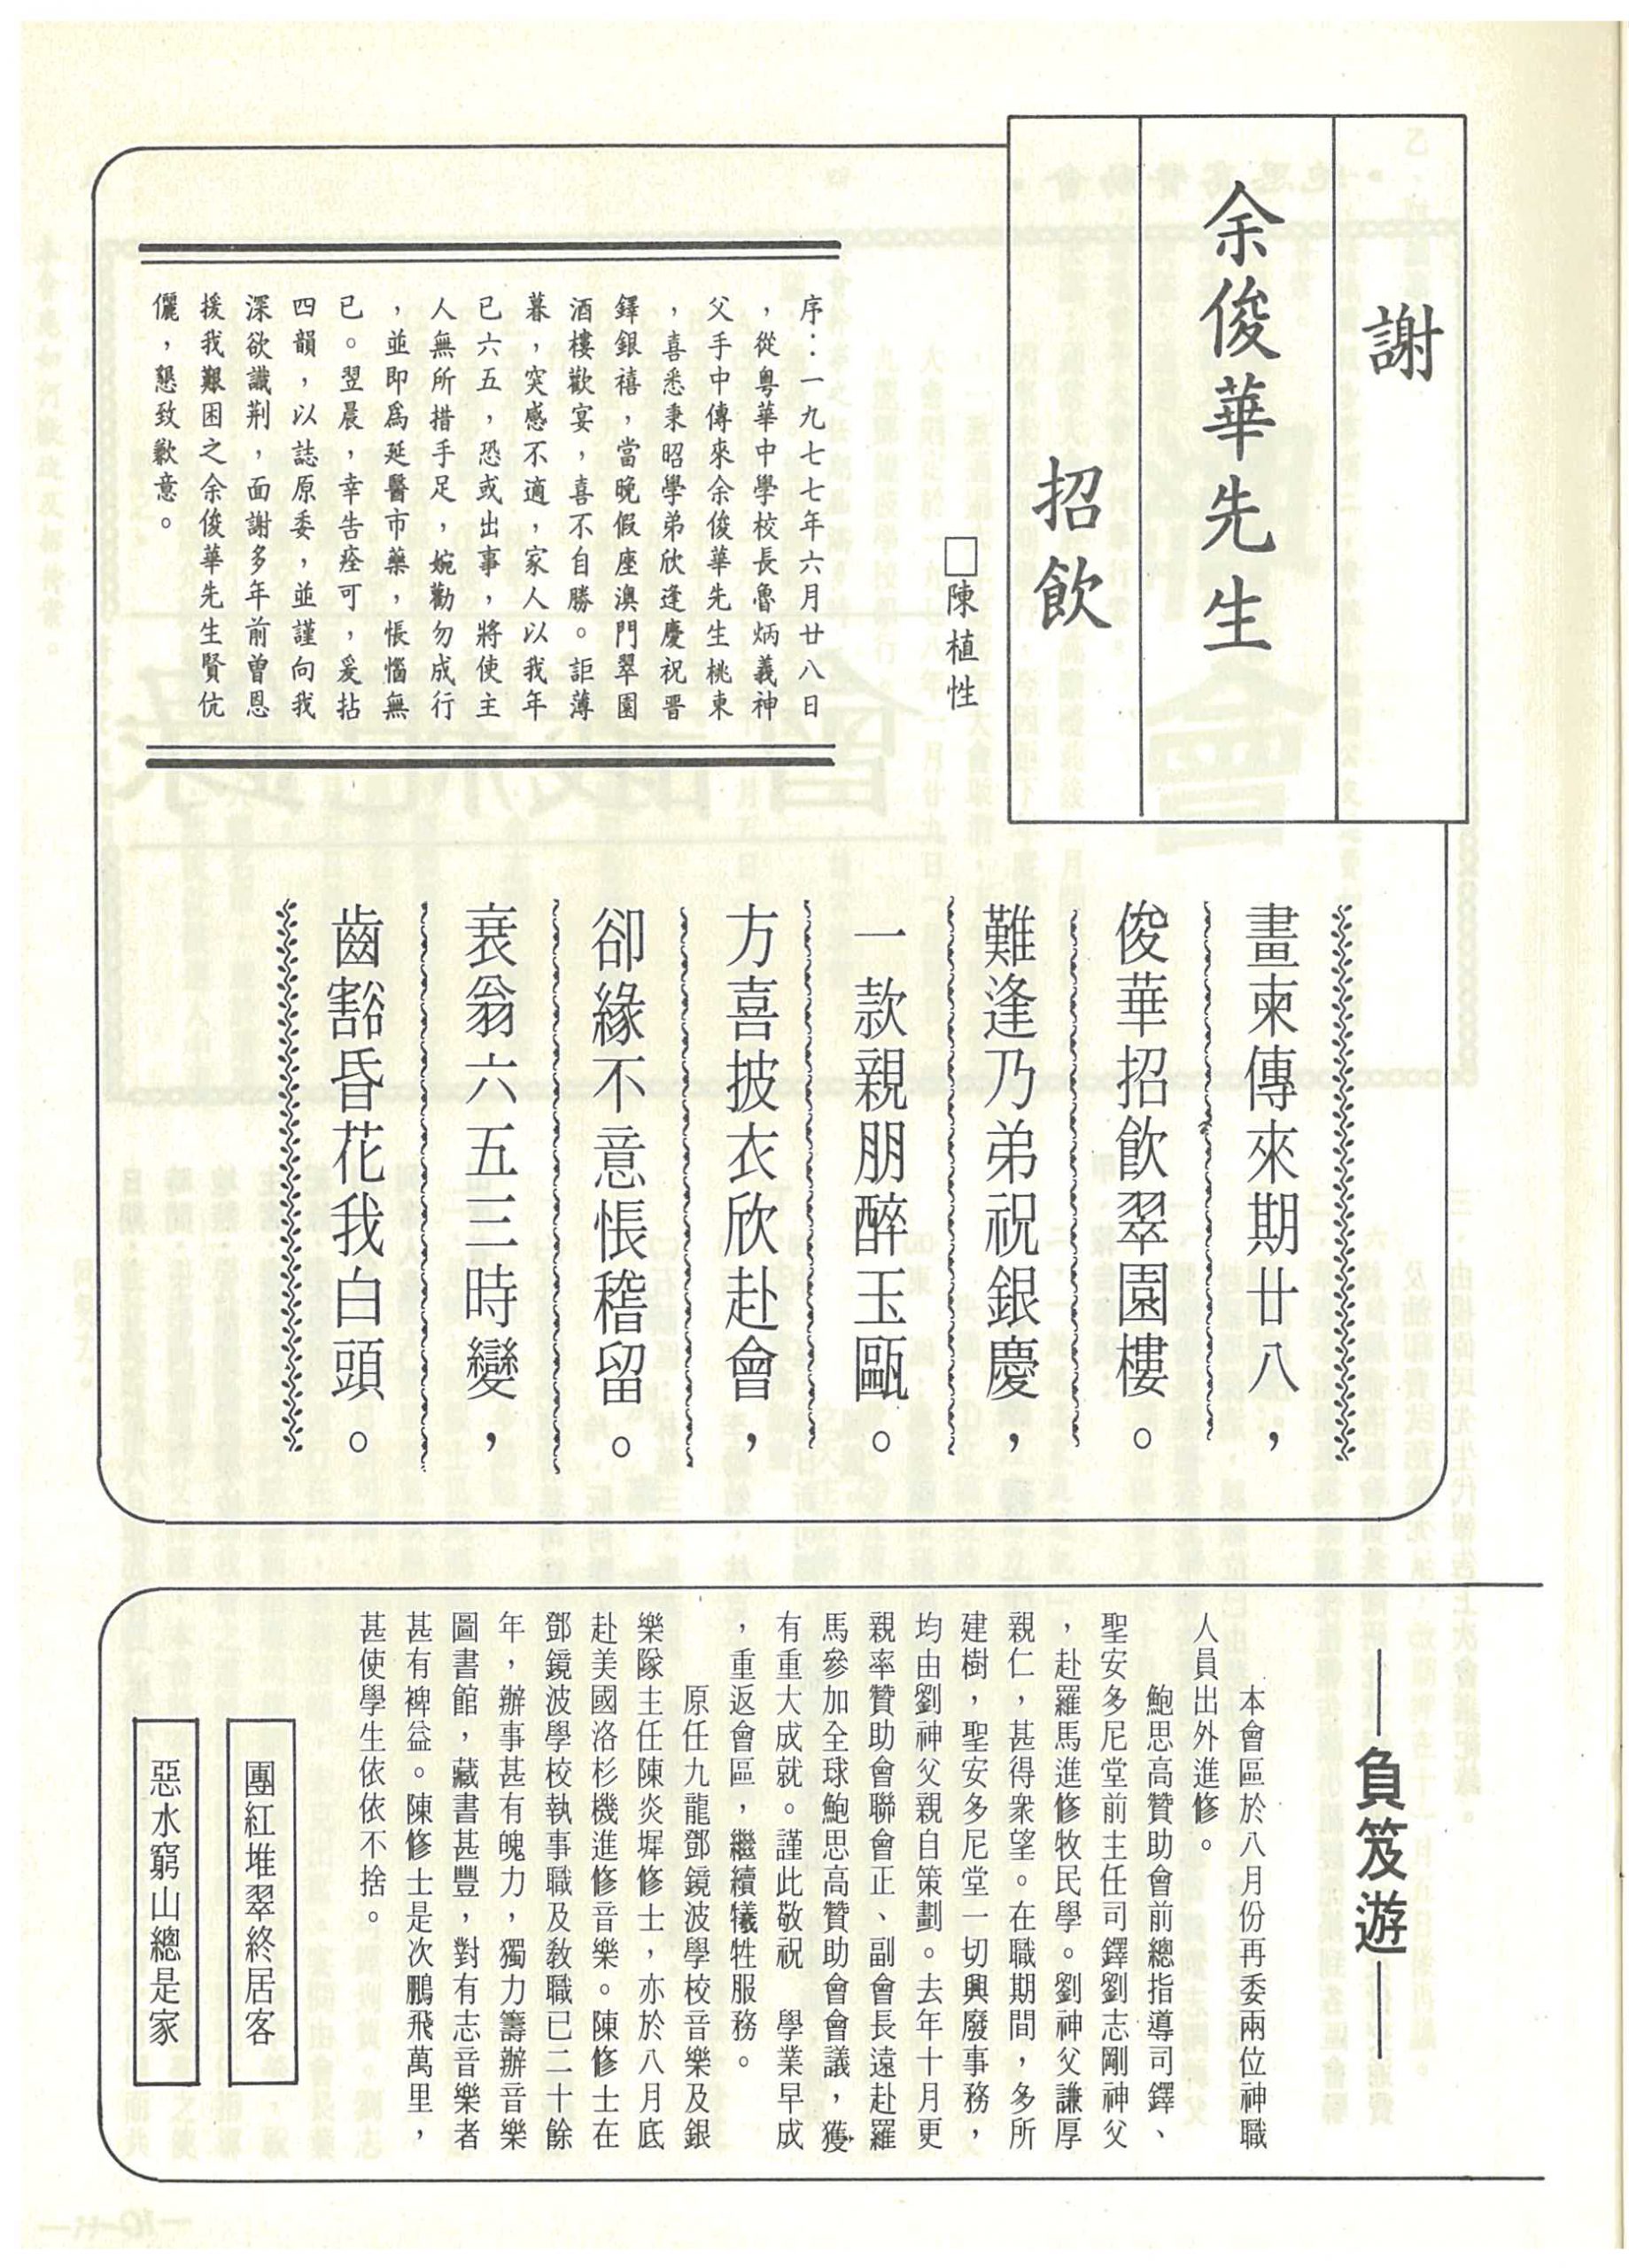 謝
余俊華先生
招飲
□陳植性
序：一九七七年六月廿八日
，從粵華中學校長魯炳義神
父手中傳來余俊華先生桃柬
，喜悉秉昭學弟欣逢慶祝晋
鐸銀禧，當晚假座澳門翠園
酒樓歡宴，喜不自勝。詎薄
暮，突感不適，家人以我年
已六五，恐或出事，將使主
人無所措手足，婉勸勿成行
，並即爲延醫市藥，悵惱無
已。翌晨，幸告痊可，爰拈
四韻，以誌原委，並謹向我
深欲識荆，面謝多年前曾恩
援我艱困之余俊華先生賢伉
儷，懇致歉意。
畫柬傳來期廿八，
俊華招飲翠園樓。
難逢乃弟祝銀慶，
一款親朋醉玉甌。
方喜披衣欣赴會，
卻緣不意悵稽留。
衰翁六五三時變，
齒豁昏花我白頭。
——負笈遊——
本會區於八月份再委兩位神職
人員出外進修。
鮑思高贊助會前總指導司鐸、
聖安多尼堂前主任司鐸劉志剛神父
，赴羅馬進修牧民學。劉神父謙厚
親仁，甚得衆望。在職期間，多所
建樹，聖安多尼堂一切興廢事務，
均由劉神父親自策劃。去年十月更
親率贊助會聯會正、副會長遠赴羅
馬參加全球鮑思高贊助會會議，獲
有重大成就。謹此敬祝　學業早成
，重返會區，繼續犧牲服務。
原任九龍鄧鏡波學校音樂及銀
樂隊主任陳炎墀修士，亦於八月底
赴美國洛杉機進修音樂。陳修士在
鄧鏡波學校執事職及敎職已二十餘
年，辦事甚有魄力，獨力籌辦音樂
圖書館，藏書甚豐，對有志音樂者
甚有裨益。陳修士是次鵬飛萬里，
甚使學生依依不捨。
團紅堆翠終居客
惡水窮山總是家